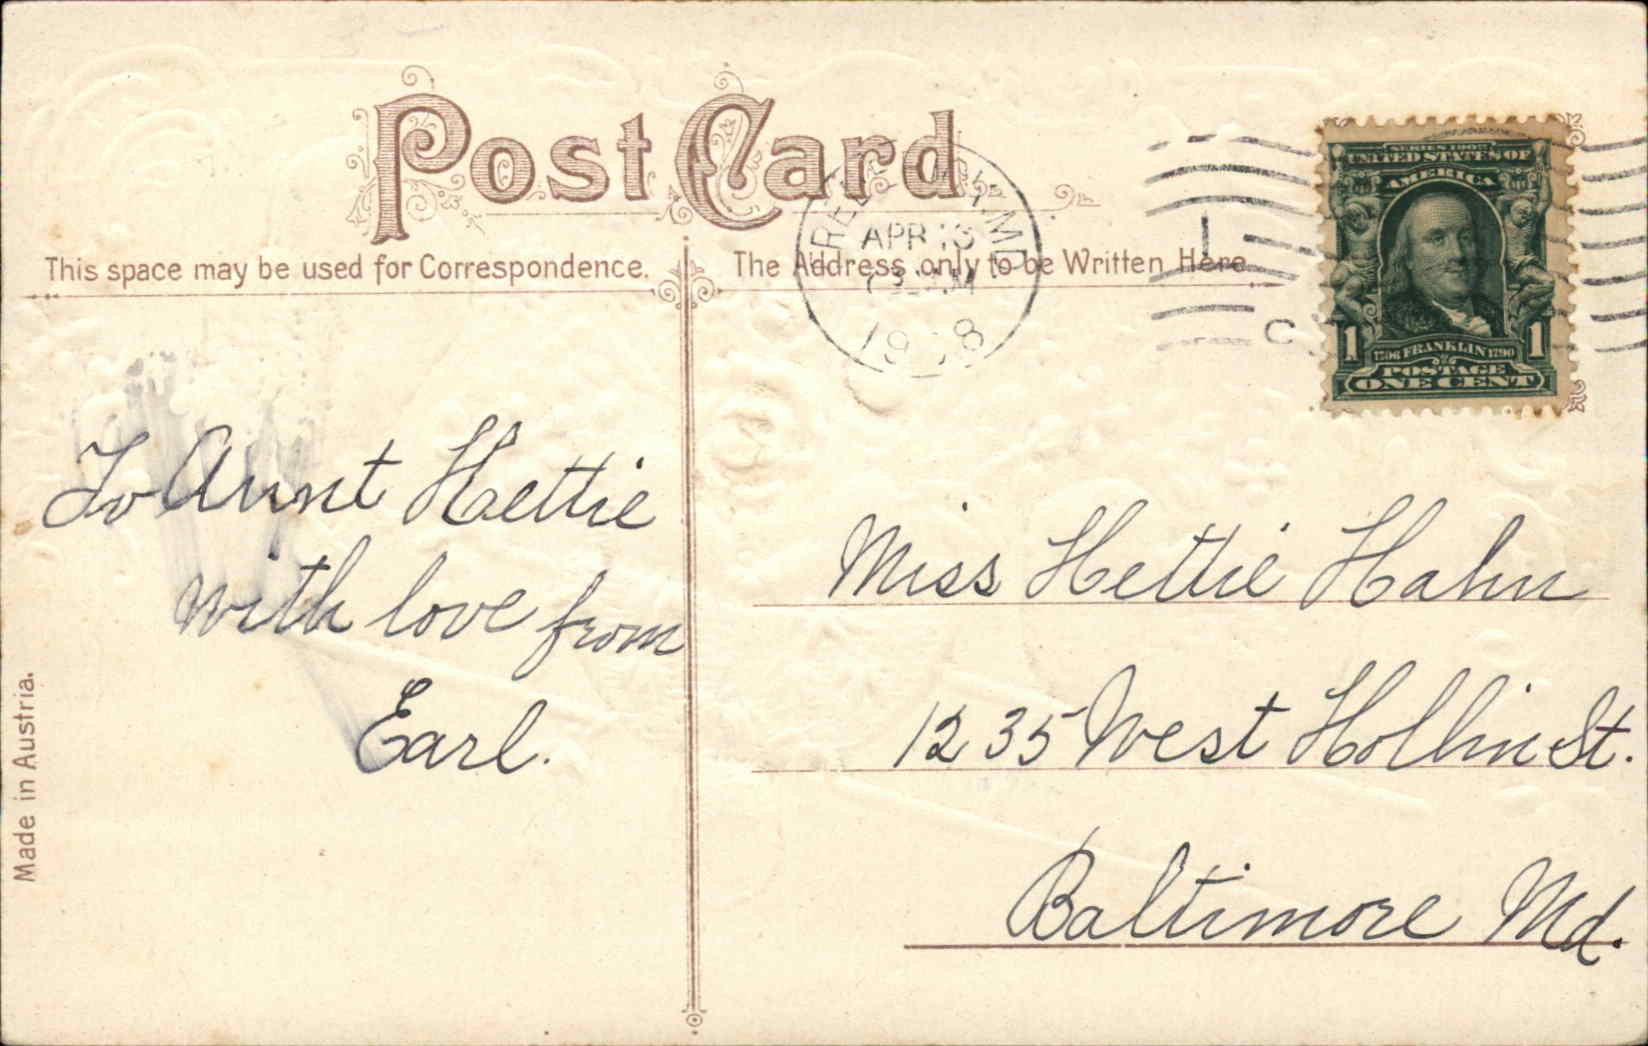 Post Card
This space may be used for Correspondence.
The Address only to be Written Here
APR 13
1908
1
C
SERIES 1902
UNITED STATES OF
AMERICA
1 1
1706 FRANKLIN 1790
POSTAGE
ONE CENT
To Aunt Hettie
with love from
Earl.
Miss Hettie Hahn
1235 West Hollin St.
Baltimore Md.
Made in Austria.